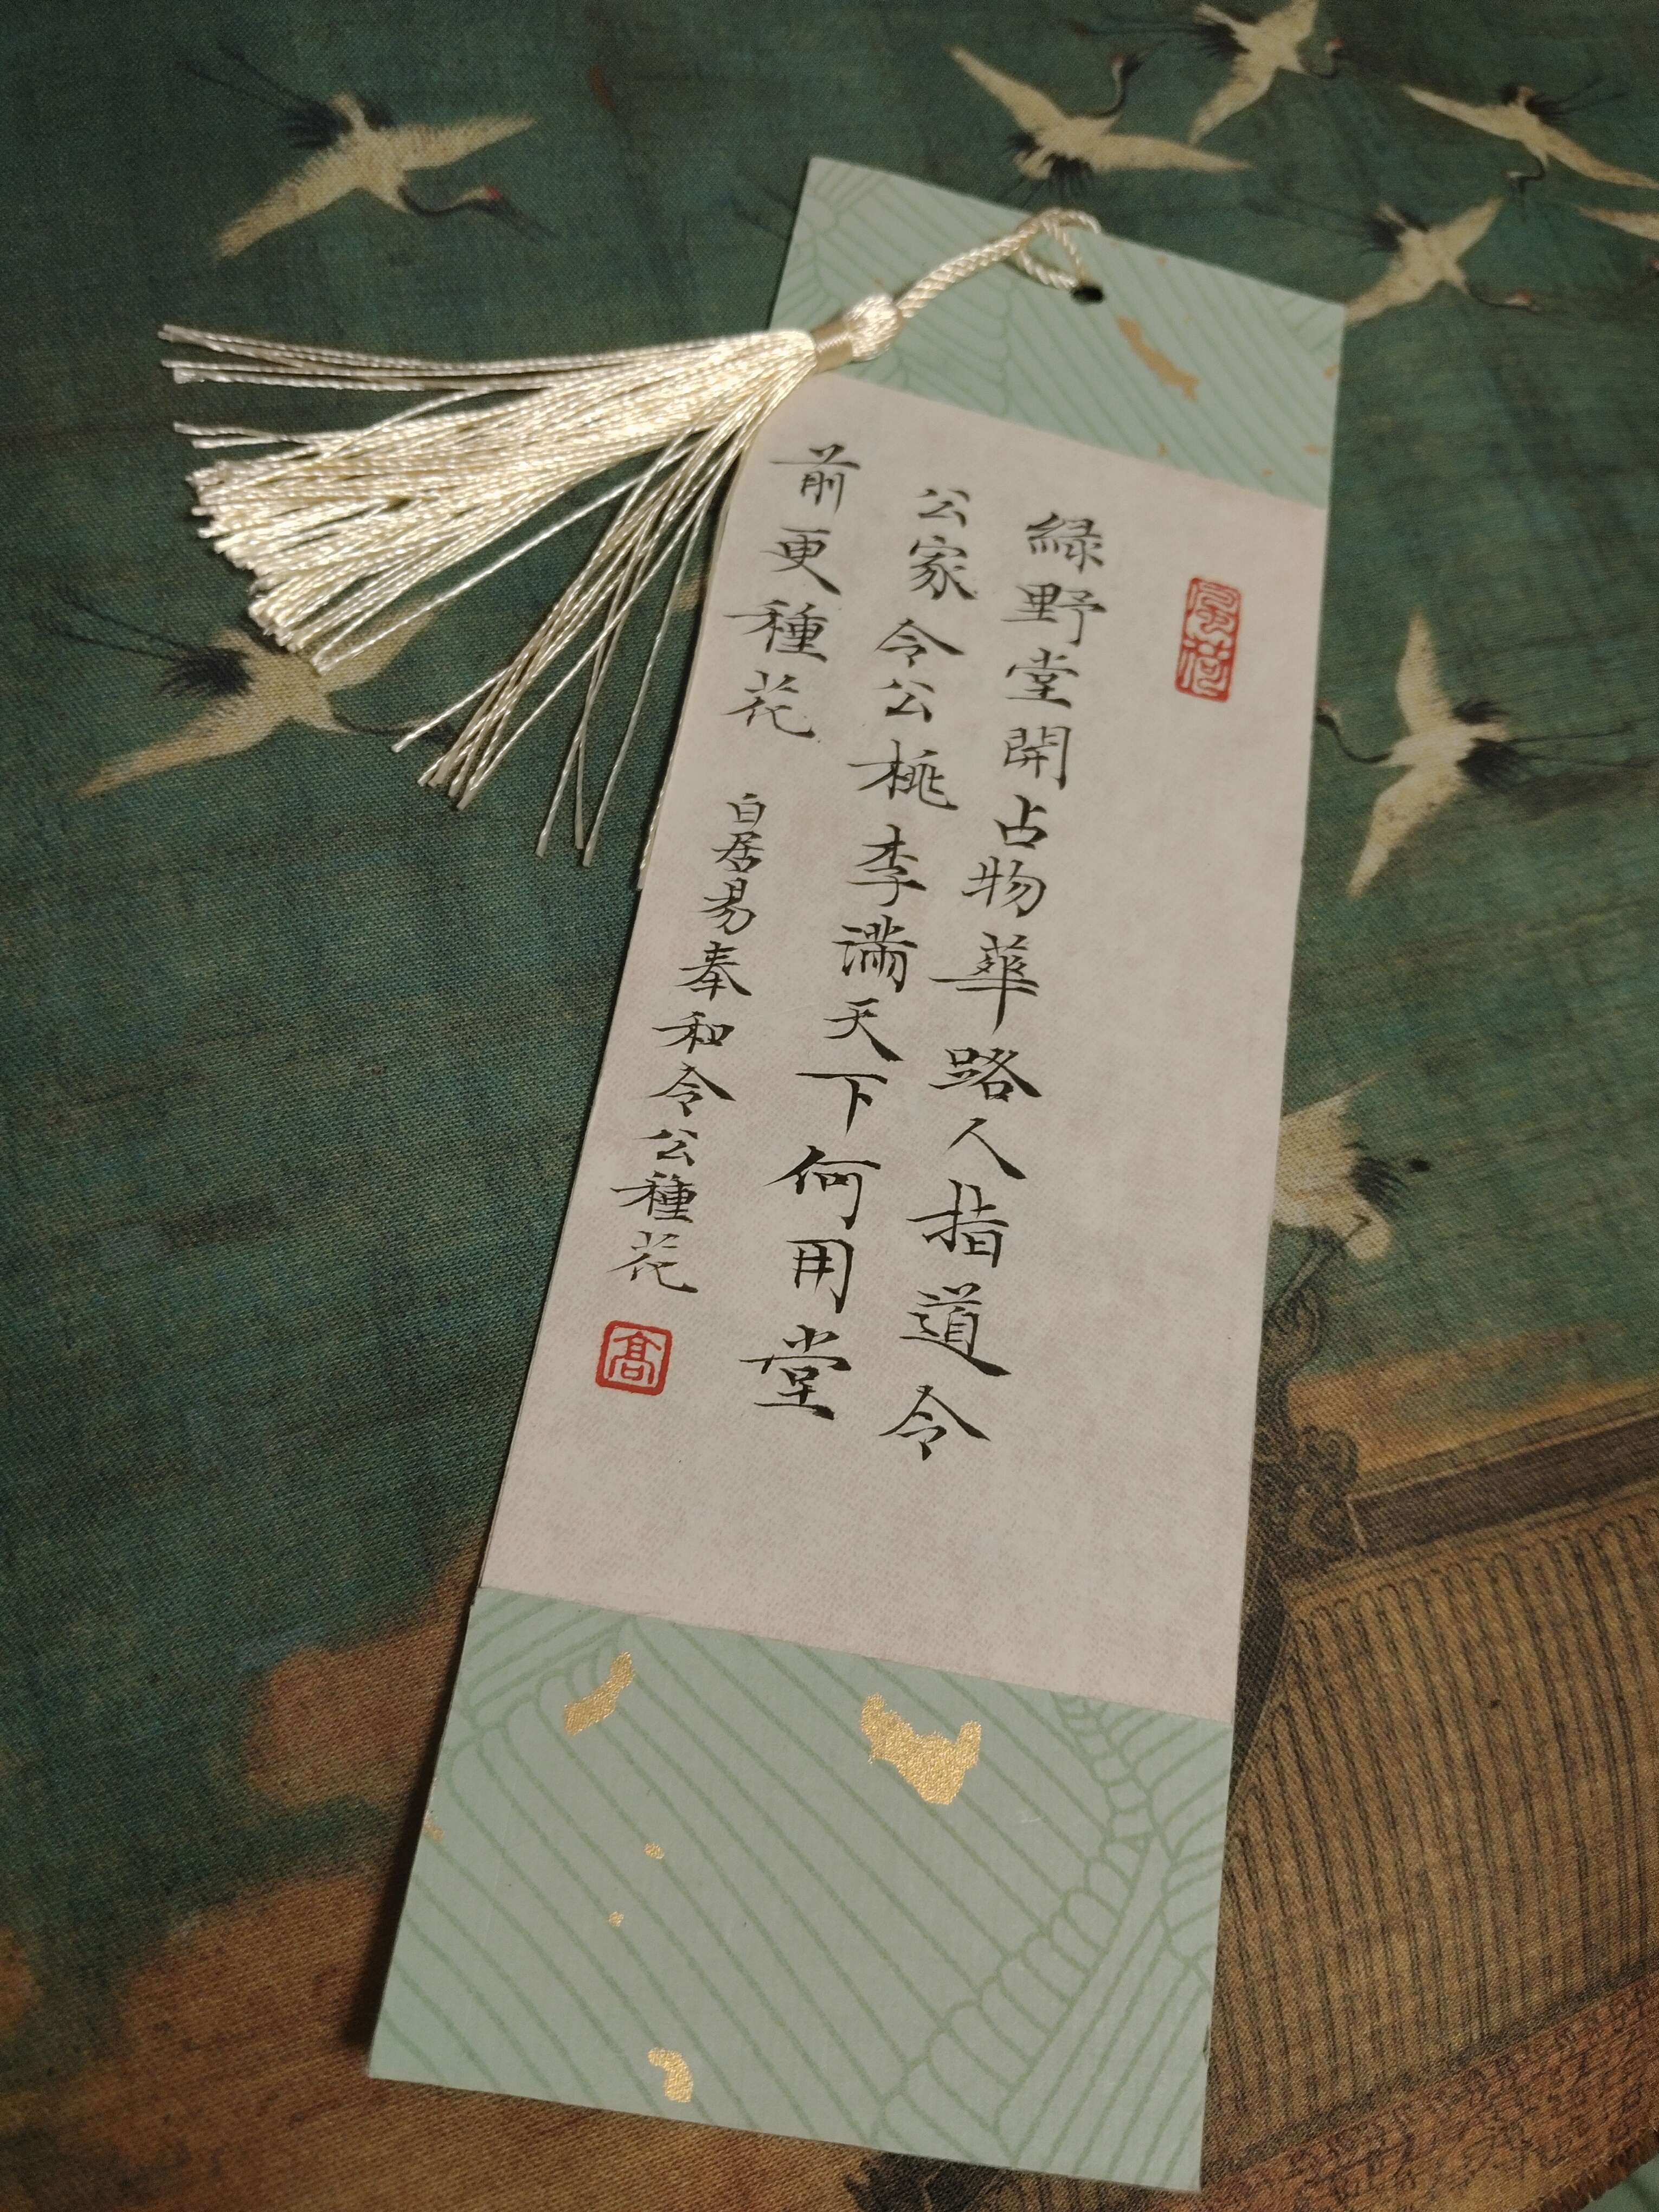 綠野堂開占物華路人指道令
公家令公桃李滿天下何用堂
前更種花
白居易奉和令公種花
高